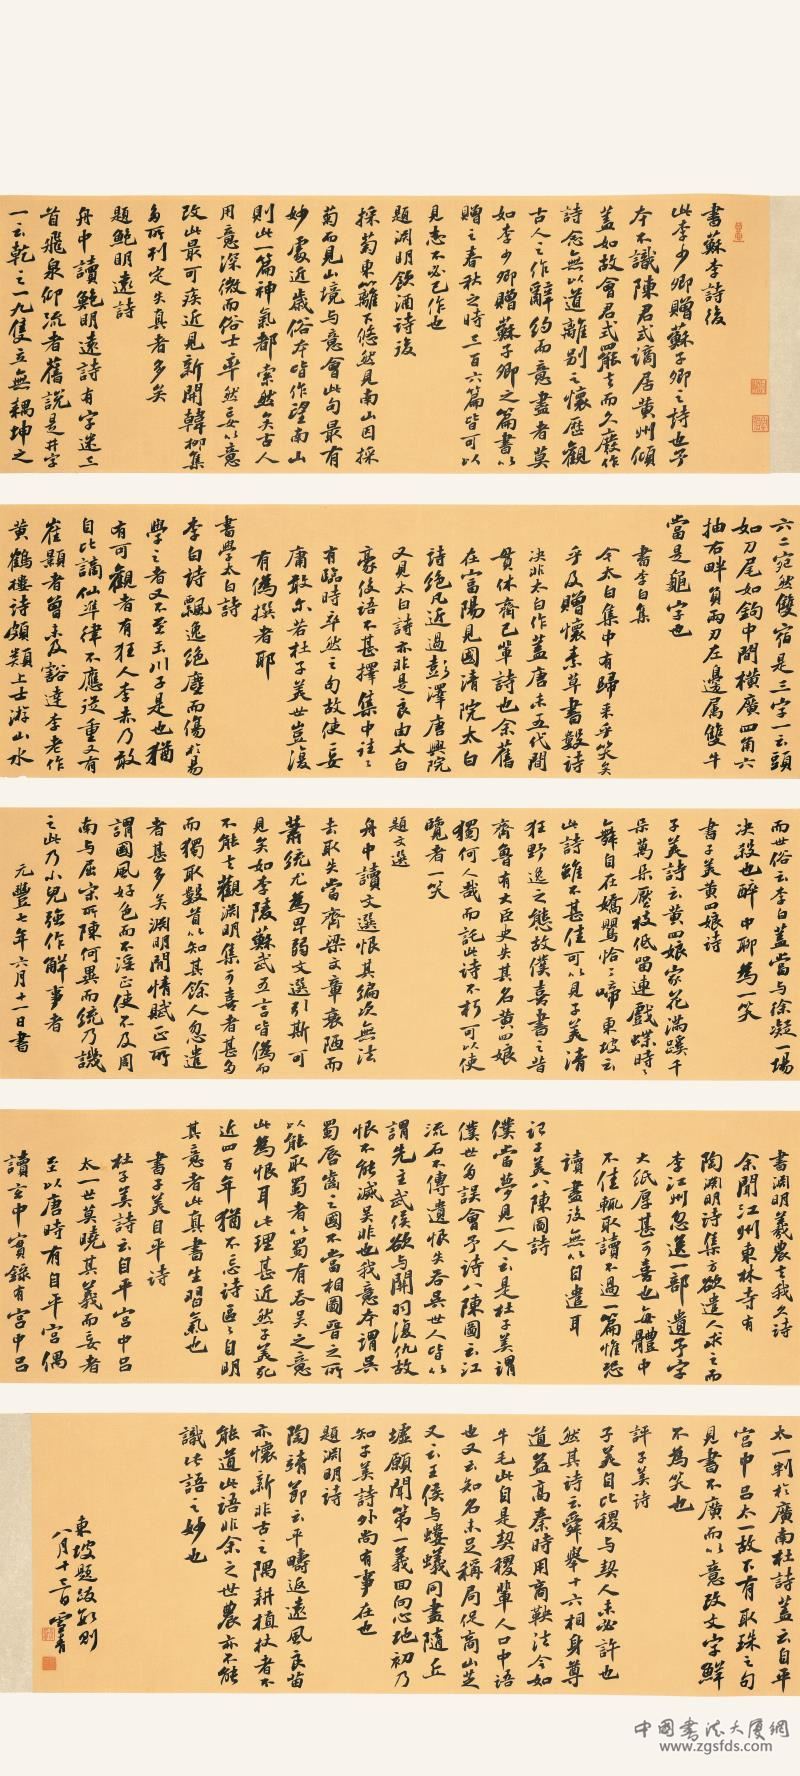 書蘇李詩後
此李少卿贈蘇子卿之詩也予
本不識陳君式謫居黃州傾
蓋如故會君式罷去而久廢作
詩念無以道離別之懷歷觀
古人之作辭約而意盡者莫
如李少卿贈蘇子卿之篇書以
贈之春秋之時三百六篇皆可以
見志不必己作也
題淵明飲酒詩後
採菊東籬下悠然見南山因採
菊而見山境與意會此句最有
妙處近歲俗本皆作望南山
則此一篇神氣都索然矣古人
用意深微而俗士率然妄以意
改此最可疾近見新開韓柳集
多所刊定失真者多矣
題鮑明遠詩
舟中讀鮑明遠詩有字迷三
首飛泉仰流者舊說是井字
一云乾之一九隻立無耦坤之
六二宛然雙宿是三字一云頭
如刀尾如鉤中間橫廣四角六
抽右畔負兩刃左邊屬雙牛
當是龜字也
書李白集
今太白集中有歸來乎笑矣
乎及贈懷素草書數詩
決非太白作蓋唐末五代間
貫休齊己輩詩也余舊
在富陽見國清院太白
詩絕凡近過彭澤唐興院
又見太白詩亦非是良由太白
豪俊語不甚擇集中往々
有臨時卒然之句故使妄
庸敢爾若杜子美世豈復
有偽撰者耶
書學太白詩
李白詩飄逸絕塵而傷於易
學之者又不至玉川子是也猶
有可觀者有狂人李赤乃敢
自比謫仙準律不應從重又有
崔顥者曾未及豁達李老作
黃鶴樓詩頗類上士游山水
而世俗云李白蓋當與徐凝一場
決殺也醉中聊為一笑
書子美黃四娘詩
子美詩云黃四娘家花滿蹊千
朵萬朵壓枝低留連戲蝶時々
舞自在嬌鶯恰々啼東坡云
此詩雖不甚佳可以見子美清
狂野逸之態故僕喜書之昔
齊魯有大臣史失其名黃四娘
獨何人哉而託此詩不朽可以使
覽者一笑
題文選
舟中讀文選恨其編次無法
去取失當齊梁文章衰陋而
蕭統尤為卑弱文選引斯可
見矣如李陵蘇武五言皆偽而
不能去觀淵明集可喜者甚多
而獨取數首以知其餘人忽遺
者甚多矣淵明閒情賦正所
謂國風好色而不淫正使不及周
南與屈宋所陳何異而統乃譏
之此乃小兒強作解事者
元豐七年六月十一日書
書淵明羲農去我久詩
余聞江州東林寺有
陶淵明詩集方欲遣人求之而
李江州忽送一部遺予字
大紙厚甚可喜也每體中
不佳輒取讀不過一篇惟恐
讀盡後無以自遣耳
記子美八陳圖詩
僕嘗夢見一人云是杜子美謂
僕世多誤會予詩八陳圖云江
流石不轉遺恨失吞吳世人皆以
謂先主武侯欲與關羽復仇故
恨不能滅吳非也我意本謂吳
蜀唇齒之國不當相圖晉之所
以能取蜀者以蜀有吞吳之意
此為恨耳此理甚近然子美死
近四百年猶不忘詩區々自明
其意者此真書生習氣也
書子美自平詩
杜子美詩云自平宮中呂
太一世莫曉其義而妄者
至以唐時有自平宮偶
讀玄中實錄有宮中呂
太一判於廣南杜詩蓋云自平
宮中呂太一故下有取珠之句
見書不廣而以意改文字鮮
不為笑也
評子美詩
子美自比稷與契人未必許也
然其詩云舜舉十六相身尊
道益高秦時用商鞅法令如
牛毛此自是契稷輩人口中語
也又云知名未足稱局促商山芝
又云王侯與螻蟻同盡隨丘
墟願聞第一義回向心地初乃
知子美詩外尚有事在也
題淵明詩
陶靖節云平疇返遠風良苗
亦懷新非古之隅耕植杖者不
能道此語非余之世農亦不能
識此語之妙也
東坡題跋數則
八月十三日雪青
中國書法大廈網
www.zgsfds.com